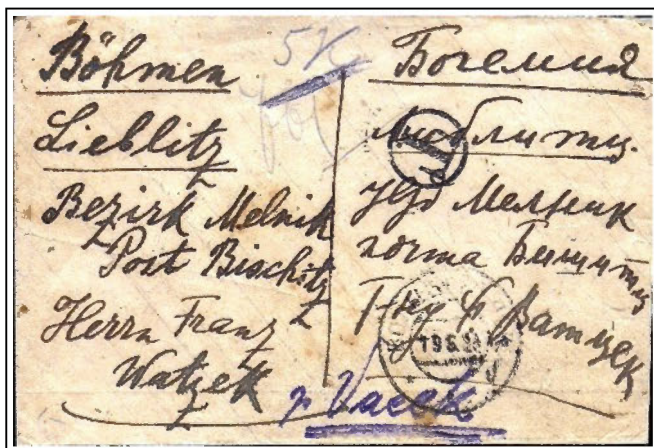 5K
Böhmen
Lieblitz
Bezirk Melnik
Post Bischitz
Herrn Franz
Watzek
Богемия
Люблитц.
Мелник
почта Бишитц
Г-ну Ф Ватцек
p. Vacek